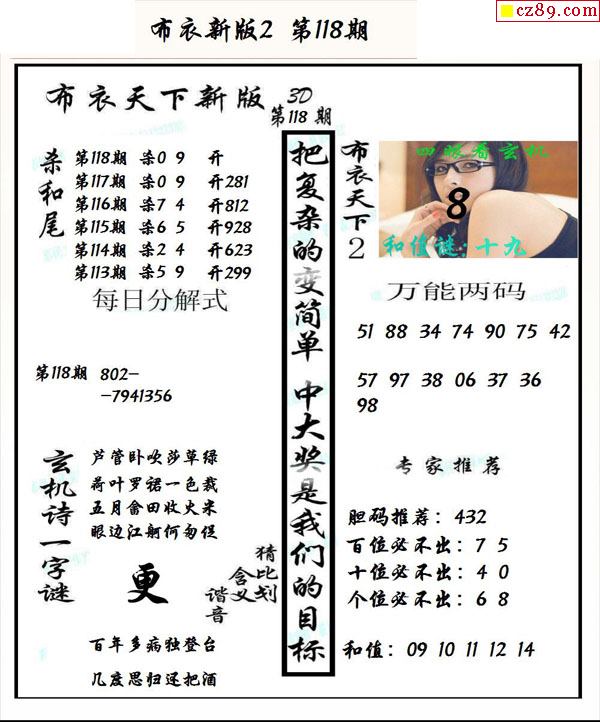 cz89.com
布衣新版2 第118期
布衣天下新版 3D
第118期
杀和尾
第118期 杀0 9 开
第117期 杀0 9 开281
第116期 杀7 4 开812
第115期 杀6 5 开928
第114期 杀2 4 开623
第113期 杀5 9 开299
每日分解式
第118期 802-
-7941356
玄机诗一字谜
芦管卧吹莎草绿
荷叶罗裙一色裁
五月畬田收火米
眼边江舸何匆促
更
猜比划
含义
谐音
百年多病独登台
几度思归还把酒
把复杂的变简单 中大奖是我们的目标
布衣天下2
四眼看玄机
8
和值谜:十九
万能两码
51 88 34 74 90 75 42
57 97 38 06 37 36
98
专家推荐
胆码推荐:432
百位必不出:7 5
十位必不出:4 0
个位必不出:6 8
和值:09 10 11 12 14